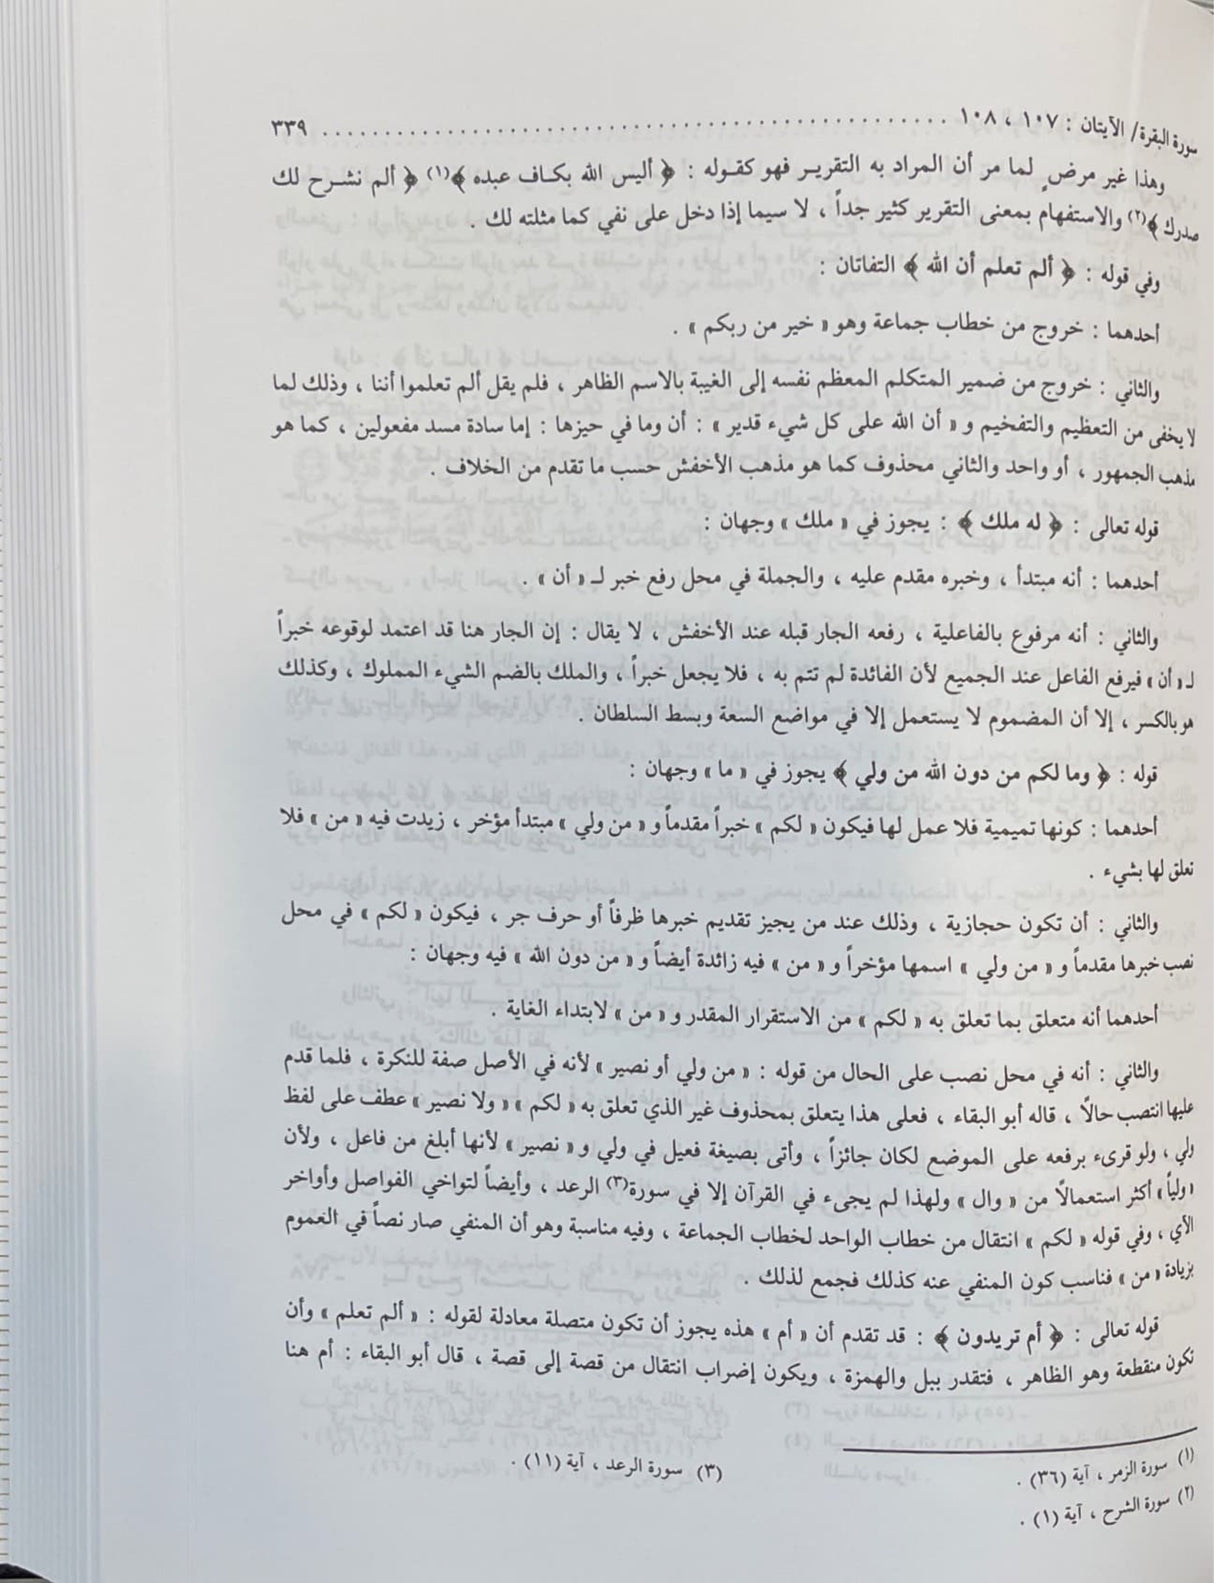 سورة البقرة/ الآيتان : ١٠٧ ، ١٠٨ ................................................ ٣٣٩
وهذا غير مرضٍ لما مر أن المراد به التقريـر فهو كقـوله : ﴿ أليس الله بكـاف عبده ﴾(١) ﴿ ألم نشـرح لك
صدرك ﴾(٢) والاستفهام بمعنى التقرير كثير جداً ، لا سيما إذا دخل على نفي كما مثلته لك .
وفي قوله : ﴿ ألم تعلم أن الله ﴾ التفاتان :
أحدهما : خروج من خطاب جماعة وهو « خير من ربكم » .
والثاني : خروج من ضمير المتكلم المعظم نفسه إلى الغيبة بالاسم الظاهر ، فلم يقل ألم تعلموا أننا ، وذلك لما
لا يخفى من التعظيم والتفخيم و « أن الله على كل شيء قدير » : أن وما في حيزها : إما سادة مسد مفعولين ، كما هو
مذهب الجمهور ، أو واحد والثاني محذوف كما هو مذهب الأخفش حسب ما تقدم من الخلاف .
قوله تعالى : ﴿ له ملك ﴾ : يجوز في « ملك » وجهان :
أحدهما : أنه مبتدأ ، وخبره مقدم عليه ، والجملة في محل رفع خبر لـ « أن » .
والثاني : أنه مرفوع بالفاعلية ، رفعه الجار قبله عند الأخفش ، لا يقال : إن الجار هنا قد اعتمد لوقوعه خبراً
لـ « أن » فيرفع الفاعل عند الجميع لأن الفائدة لم تتم به ، فلا يجعل خبراً ، والملك بالضم الشيء المملوك ، وكذلك
هو بالكسر ، إلا أن المضموم لا يستعمل إلا في مواضع السعة وبسط السلطان .
قوله : ﴿ وما لكم من دون الله من ولي ﴾ يجوز في « ما » وجهان :
أحدهما : كونها تميمية فلا عمل لها فيكون « لكم » خبراً مقدماً و « من ولي » مبتدأ مؤخر ، زيدت فيه « من » فلا
تعلق لها بشيء .
والثاني : أن تكون حجازية ، وذلك عند من يجيز تقديم خبرها ظرفاً أو حرف جر ، فيكون « لكم » في محل
نصب خبرها مقدماً و « من ولي » اسمها مؤخراً و « من » فيه زائدة أيضاً و « من دون الله » فيه وجهان :
أحدهما أنه متعلق بما تعلق به « لكم » من الاستقرار المقدر و « من » لابتداء الغاية .
والثاني : أنه في محل نصب على الحال من قوله : « من ولي أو نصير » لأنه في الأصل صفة للنكرة ، فلما قدم
عليها انتصب حالاً ، قاله أبو البقاء ، فعلى هذا يتعلق بمحذوف غير الذي تعلق به « لكم » « ولا نصير » عطف على لفظ
ولي ، ولو قرىء برفعه على الموضع لكان جائزاً ، وأتى بصيغة فعيل في ولي و « نصير » لأنها أبلغ من فاعل ، ولأن
« ولياً » أكثر استعمالاً من « وال » ولهذا لم يجىء في القرآن إلا في سورة(٣) الرعد ، وأيضاً لتواخي الفواصل وأواخر
الآي ، وفي قوله « لكم » انتقال من خطاب الواحد لخطاب الجماعة ، وفيه مناسبة وهو أن المنفي صار نصاً في العموم
بزيادة « من » فناسب كون المنفي عنه كذلك فجمع لذلك .
قوله تعالى : ﴿ أم تريدون ﴾ : قد تقدم أن « أم » هذه يجوز أن تكون متصلة معادلة لقوله : « ألم تعلم » وأن
تكون منقطعة وهو الظاهر ، فتقدر ببل والهمزة ، ويكون إضراب انتقال من قصة إلى قصة ، قال أبو البقاء : أم هنا
(١) سورة الزمر ، آية (٣٦) .
(٢) سورة الشرح ، آية (١) .
(٣) سورة الرعد ، آية (١١) .